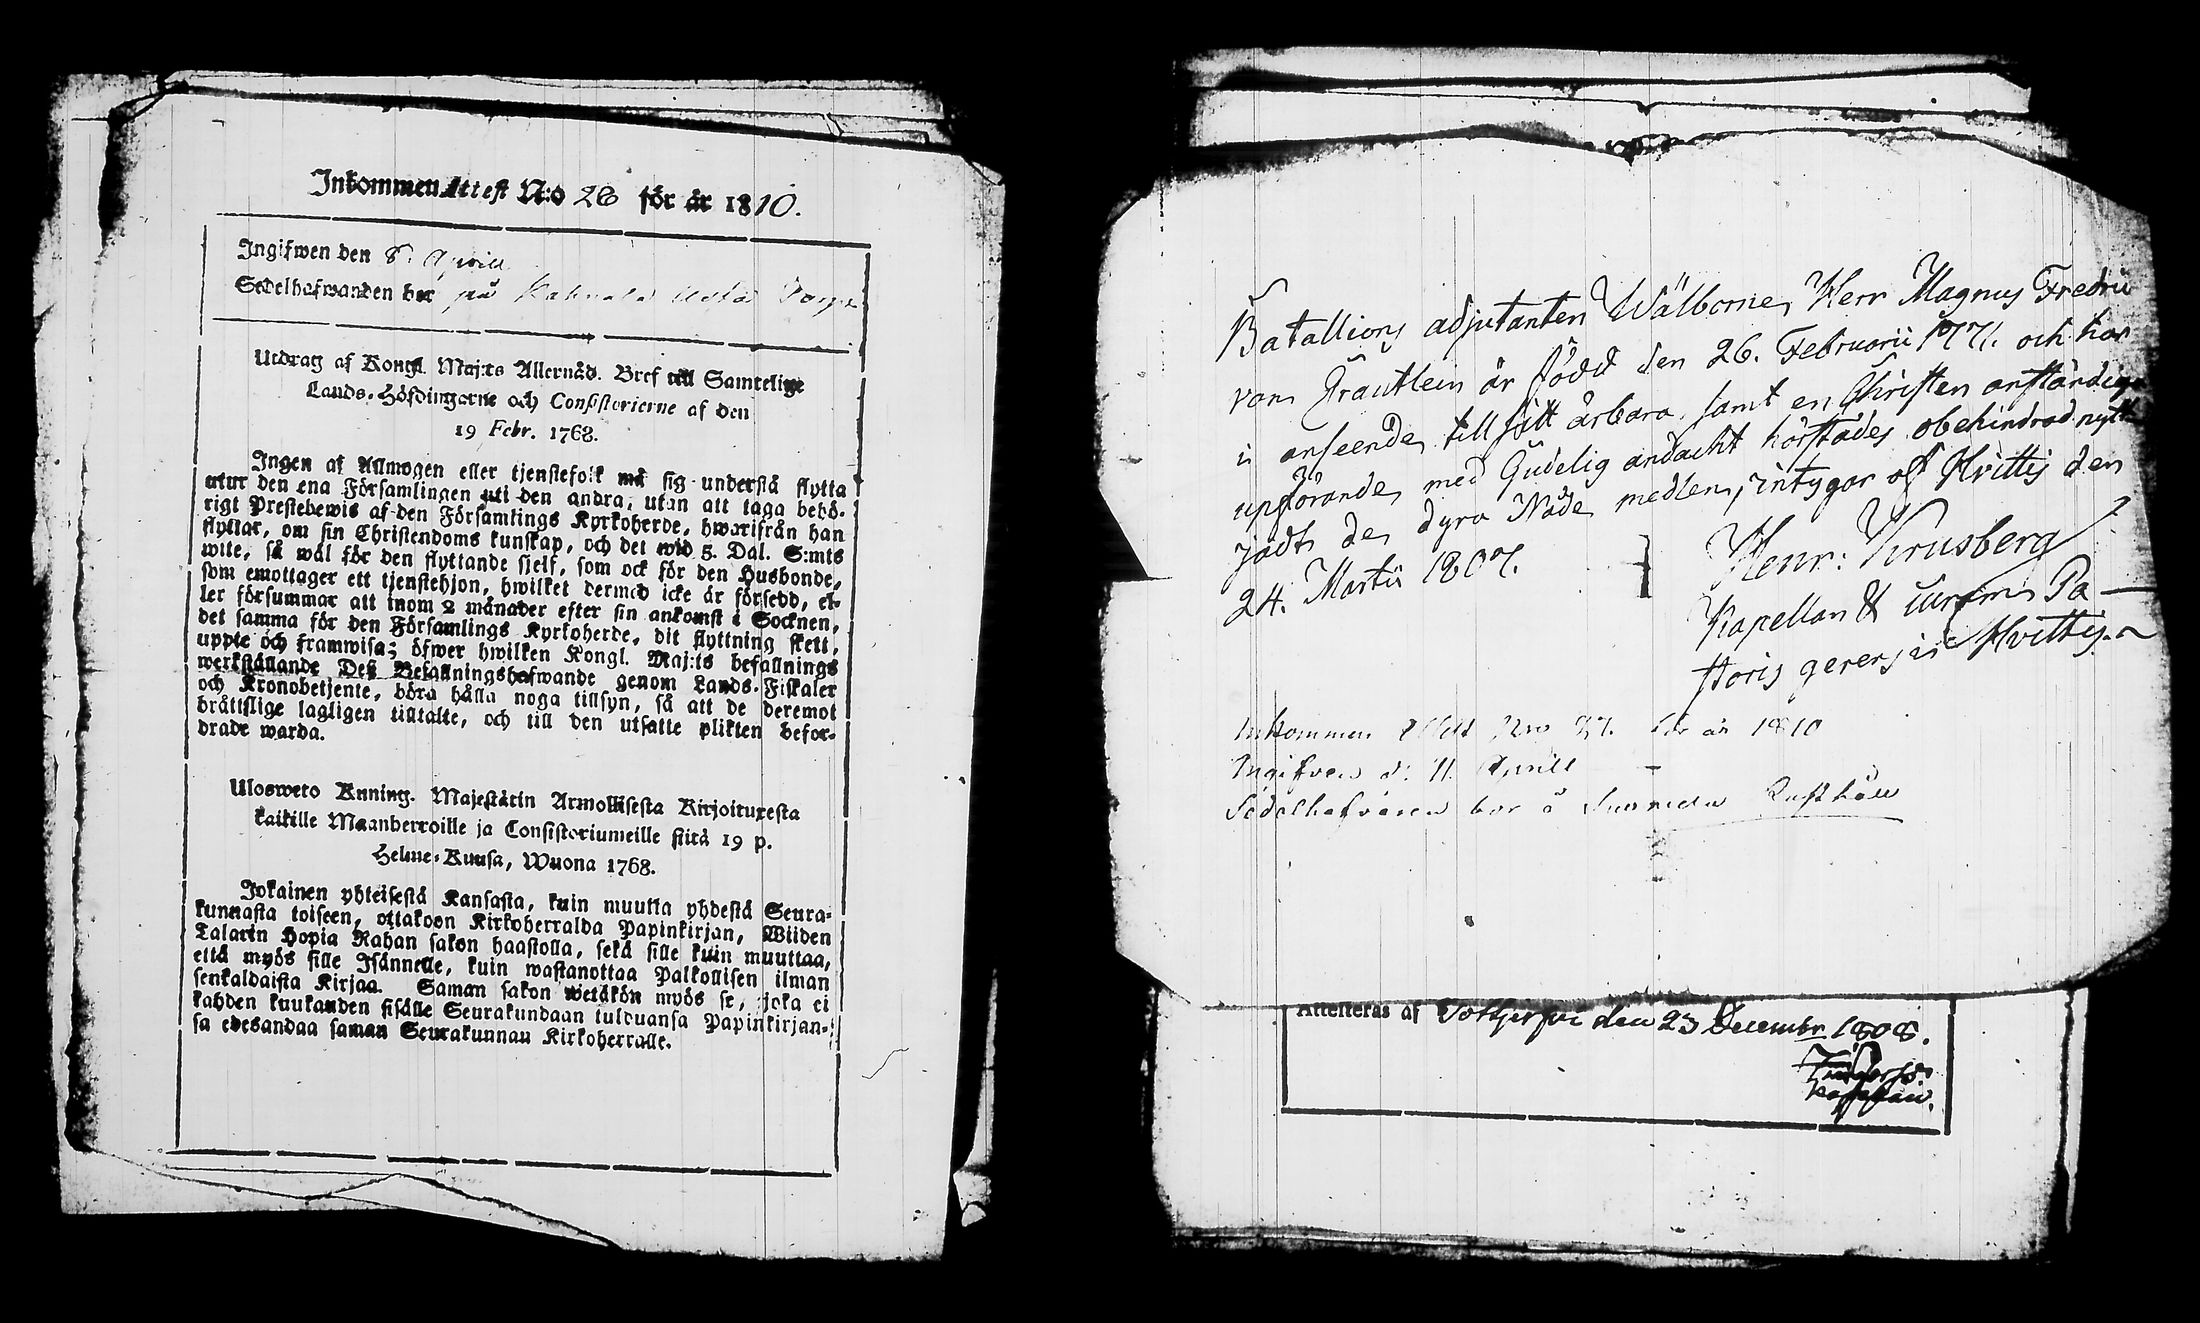 Inkommen Attest N:o 26 för år 1810.
Ingifwen den 8. Aprill
Sedelhafwanden bor på Torp
Utdrag af Kongl. Maj:ts Allernåd. Bref till Samtelige
Lands-Höfdingarne och Consistorierne af den
19 Febr. 1768.
Ingen af Allmogen eller tjenstefolk må sig understå flytta
utur den ena Församlingen uti den andra, utan att taga behö-
rigt Prestebewis af den Församlings Kyrkoherde, hwarifrån han
flyttar, om sin Christendoms kunskap, och det wid 5. Dal. S:mts
wite, så wäl för den flyttande sjelf, som ock för den Husbonde,
som emottager ett tjenstehjon, hwilket dermed icke är försedd, el-
ler försummar att inom 2 månader efter sin ankomst i Socknen,
det samma för den Församlings Kyrkoherde, dit flyttning skett,
uppte och framwisa; öfwer hwilken Kongl. Maj:ts befallnings
werkställande Deß Befallningshafwande genom Lands-Fiskaler
och Kronobetjente, böra hålla noga tillsyn, så att de deremot
bråttslige lagligen tilltalte, och till den utsatte plikten befor-
drade warda.
Ulosweto Kuning. Majestätin Armollisesta Kirjoituxesta
kaikille Maanherroille ja Consistoriumeille siitä 19 p.
Helme-Kuusa, Wuona 1768.
Jokainen yhteisestä Kansasta, kuin muutta yhdestä Seura-
kunnasta toiseen, ottakoon Kirkoherralda Papinkirjan, Wiiden
Talarin Hopia Rahan sakon haastolla, sekä sille kuin muuttaa,
että myös sille Isännelle, kuin wastanottaa Palkollisen ilman
senkaldaista Kirjaa. Saman sakon wetäkön myös se, joka ei
kahden kuukauden sisälle Seurakundaan tulduansa Papinkirjan-
sa edesandaa saman Seurakunnan Kirkoherralle.
Batallions adjutanten Wälborne Herr Magnus Fredric
von Frautlein är född den 26. Februarii 1771. och har
i anseende till sitt ärbara samt en Christen anständiga
upförande med Gudelig andacht härstädes obehindrad nytt-
jadt de dyra Nåde medlen, intygar af Hvittis den
24. Martii 1807.
Henr: Krusberg
Kapellan & curam Pa-
storis gerens i Hvittis.
Inkommen Attest Nro 27. för år 1810
Ingifven d: 11. Aprill
Sedelhafvaren bor å Rusthåll
Attesteras af den 23 Decembr 1808.
Kapellan.